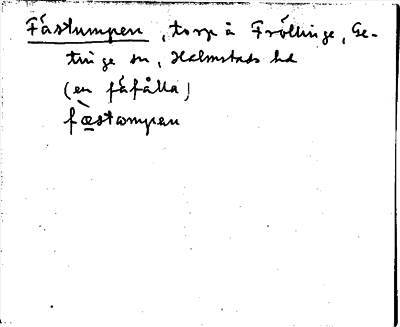 Fästumpen, torp å Fröllinge, Ge-
tinge sn, Halmstads hd
(en fåfålla)
fæ̀stompen